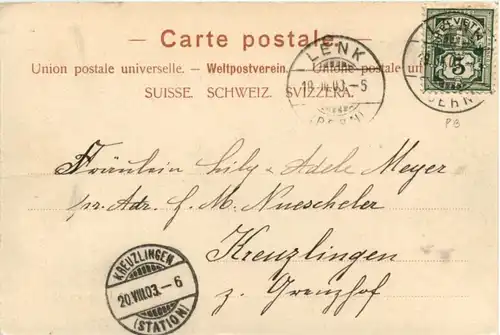 Carte postale.
Union postale universelle. — Weltpostverein. — Unione postale un
SUISSE. SCHWEIZ. SVIZZERA.
LENK
19.VIII.03.-5
(BERN)
HELVETIA
5
LENK
(BERN)
PB
Fräulein Lily & Adele Meyer
pr. Adr. H. M. Nuescheler
Kreuzlingen
z. Grenzhof
KREUZLINGEN
20.VIII.03.-6
(STATION)